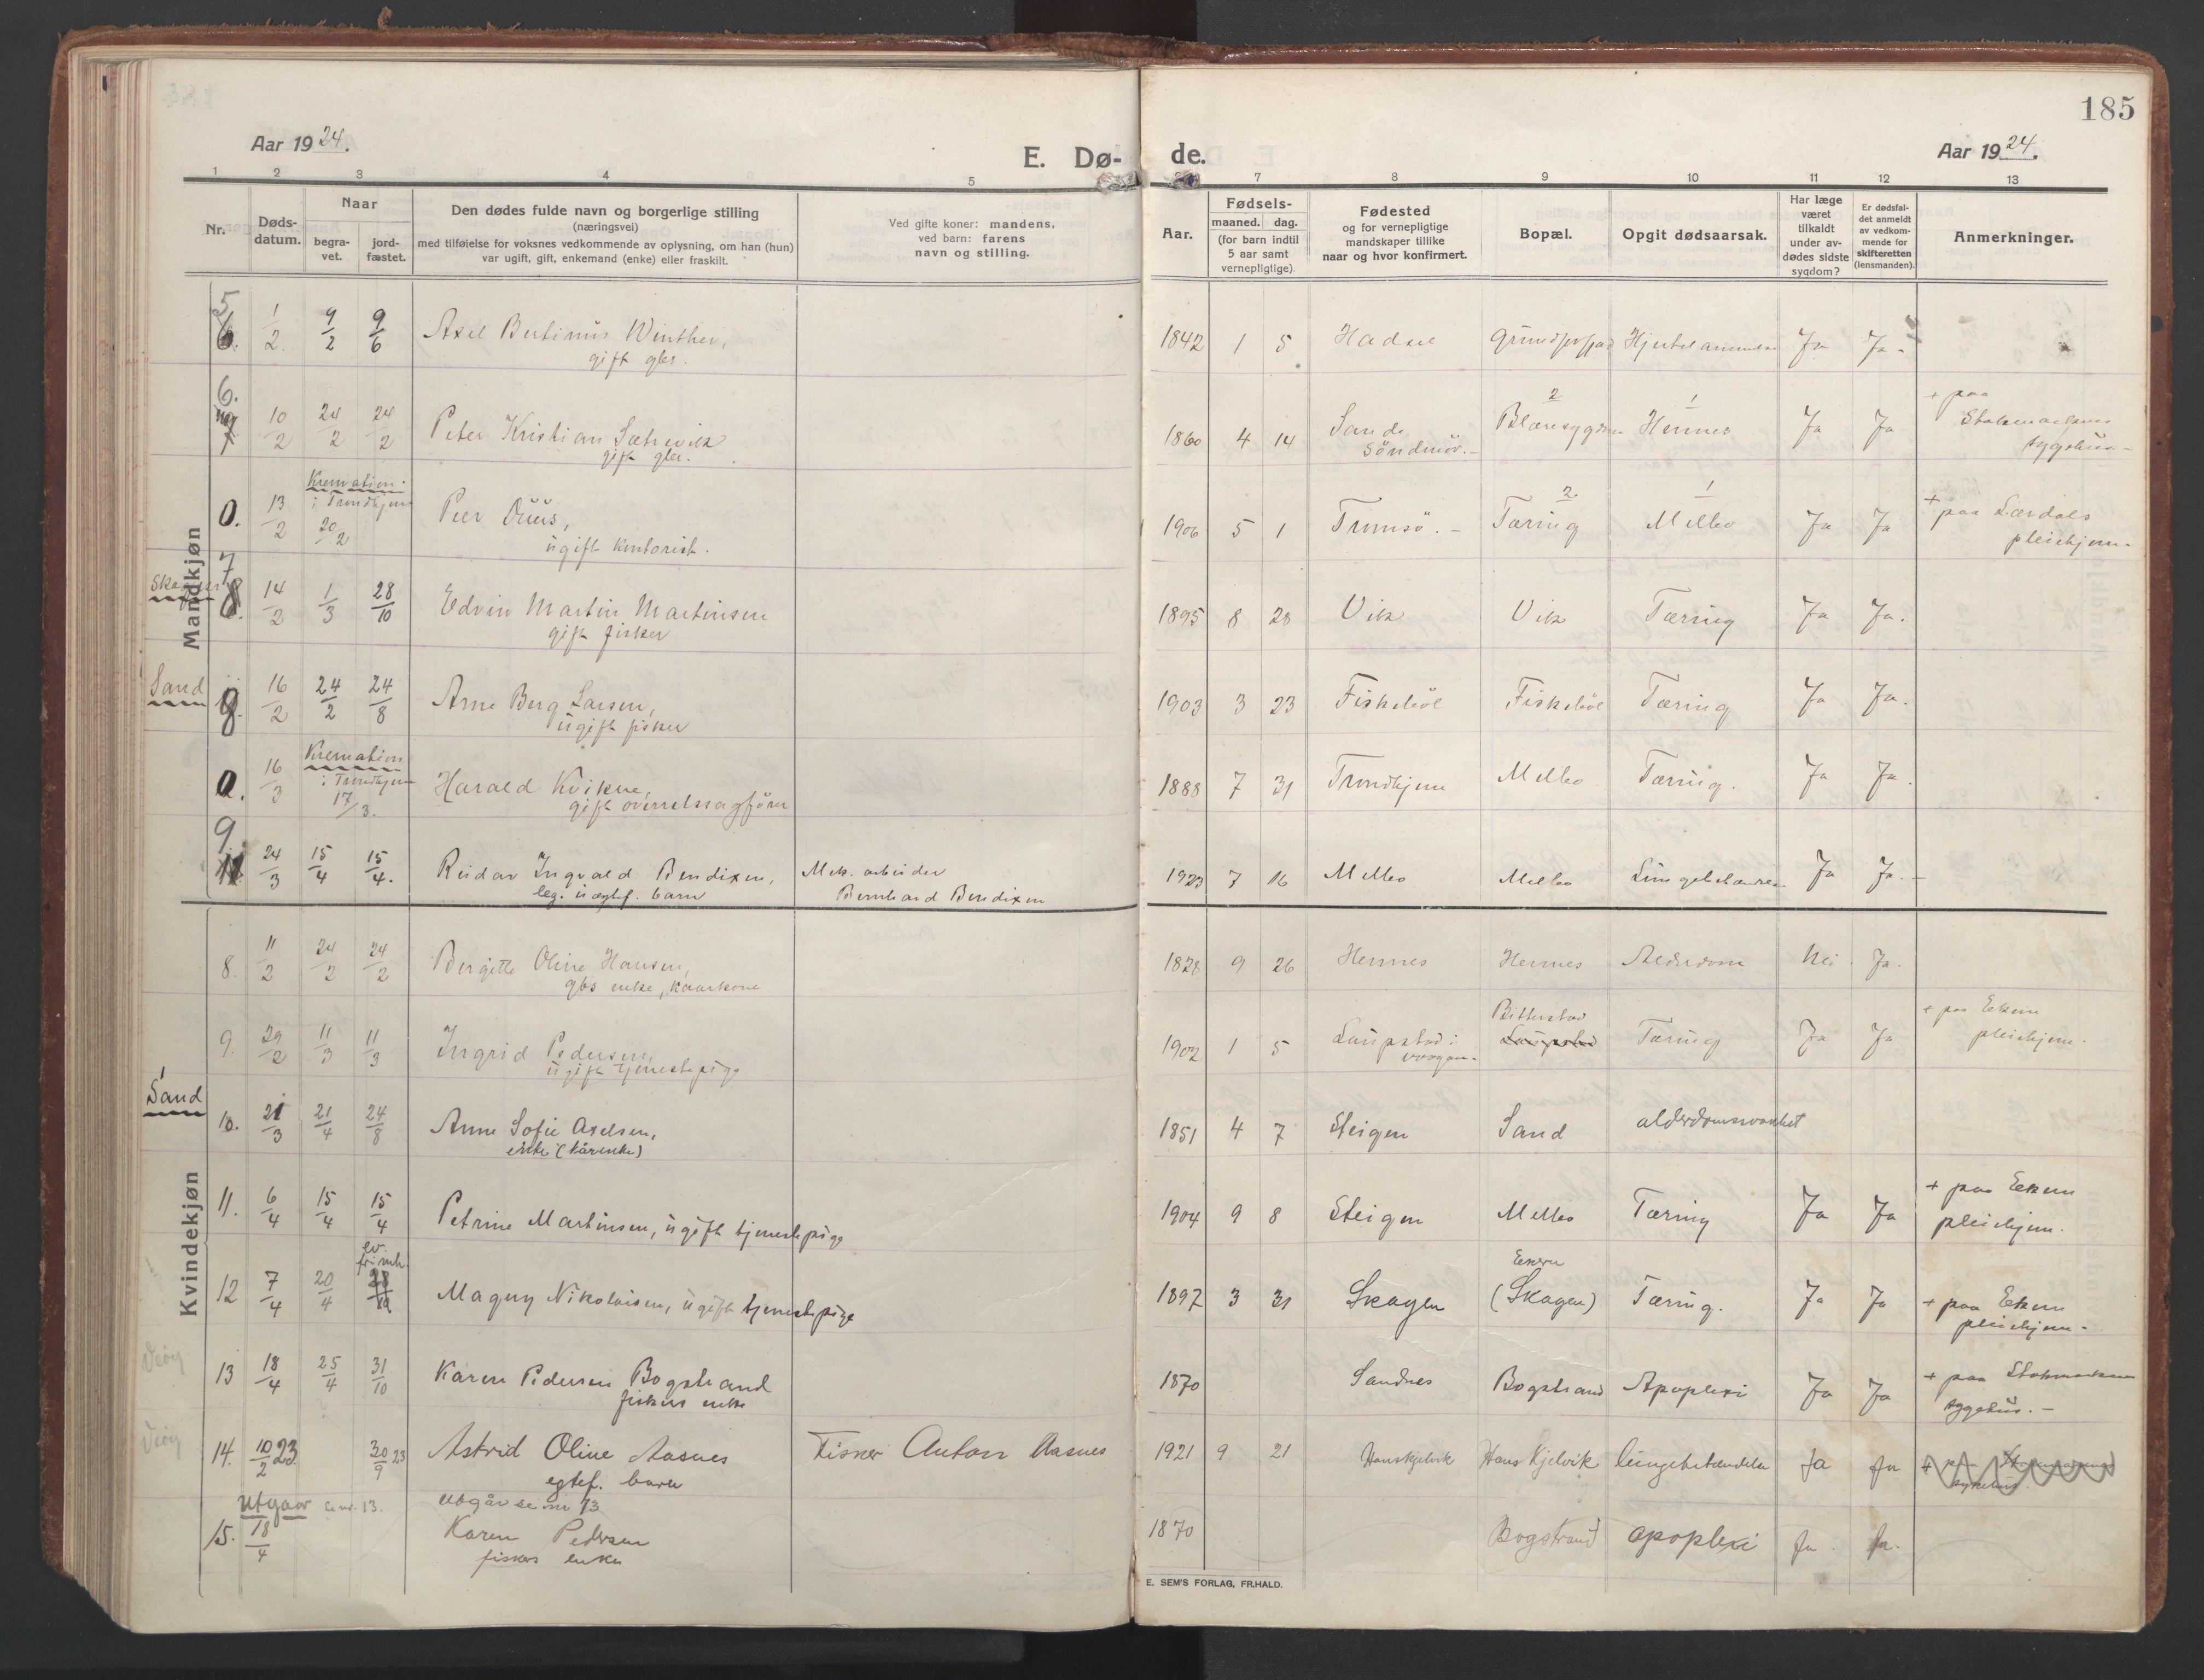 185
Aar 1924.
E. Dø-
de.
Aar 1924.
1 2 3 4 5 7 8 9 10 11 12 13
Nr.
Døds-
datum.
Naar
begra-
vet.
jord-
fæstet.
Den dødes fulde navn og borgerlige stilling
(næringsvei)
med tilføielse for voksnes vedkommende av oplysning, om han (hun)
var ugift, gift, enkemand (enke) eller fraskilt.
Ved gifte koner: mandens,
ved barn: farens
navn og stilling.
Aar.
Fødsels-
maaned. dag.
(for barn indtil
5 aar samt
vernepligtige).
Fødested
og for vernepligtige
mandskaper tillike
naar og hvor konfirmert.
Bopæl.
Opgit dødsaarsak.
Har læge
været
tilkaldt
under av-
dødes sidste
sygdom?
Er dødsfal-
det anmeldt
av vedkom-
mende for
skifteretten
(lensmanden).
Anmerkninger.
Mandkjøn
5
6. 1/2 9/2 9/6 Axel Bertinus Winther, 1842 1 5 Hadsel Ja Ja -
gift gbr.
6.
7 10/2 24/2 24/2 Peter Kristian Sætrevik 1860 4 14 Sande 2 1 Hennes Ja Ja + paa
gift gbr. Söndmör. -
Stokmarknes
sygehus -
Kremation
i Trondhjem
0. 13/2 20/2 Peer Duus, 1906 5 1 Tromsö. - 2 Tæring 1 Melbo Ja Ja + paa Lærdals
ugift kontorist. pleiehjem -
7
Skagen 8. 14/2 1/3 28/10 Edvin Martin Martinsen 1895 8 28 Vik Vik Tæring Ja Ja.
gift fisker
Sand 8. 16/2 24/2 24/8 Arne Berg Larsen, 1903 3 23 Fiskeböl Fiskeböl Tæring Ja Ja.
ugift fisker
Kremation
i Trondhjem
0. 16/3 17/3. Harald Kvikne, 1888 7 31 Trondhjem Melbo Tæring. Ja Ja.
gift overretssagförer
9.
11 24/3 15/4 15/4. Reidar Ingvald Bendixen, Mek. arbeider 1923 7 16 Melbo Melbo Ja Ja. -
leg. uægtef. barn Bernhard Bendixen
Kvindekjøn
8. 11/2 24/2 24/2 Bergitte Oline Hansen, 1828 9 26 Hennes Hennes Alderdom Nei. Ja.
gbs enke, kaarkone
Bitterstad
9. 29/2 11/3 11/3 Ingrid Pedersen, 1902 1 5 Laupstad i Laupstad Tæring Ja Ja + paa Ekren
ugift tjenestepige pleiehjem.
Sand
10. 21/3 21/4 24/8 Anne Sofie Axelsen, 1851 4 7 Steigen Sand alderdomssvakhet
enke (kårenke)
11. 6/4 15/4 15/4 Petrine Martinsen, ugift tjenestepige 1904 9 8 Steigen Melbo Tæring Ja Ja + paa Ekren
pleiehjem.
ev.
frimh.
Ekren
12 7/4 20/4 28/10 Magny Nikolaisen, ugift tjenestepige 1897 3 31 Skagen (Skagen) Tæring. Ja Ja + paa Ekren
pleiehjem -
13 18/4 25/4 31/10 Karen Pedersen Bogstrand 1870 Sandnes Bogstrand Apoplexi Ja Ja + paa Stokmarknes
fiskers enke sygehus. -
14. 10/2 23 30/9 23 Astrid Oline Aasnes Fisker Anton Aasnes 1921 9 21 Hanskjelvik Hans Kjelvik lungebetændelse Ja Ja
egtef. barn
utgaar se nr. 13. utgår se nr 13
15. 18/4 Karen Pedersen 1870 Bogstrand apoplexi Ja. Ja.
fiskers enke
E. SEM'S FORLAG, FR.HALD.